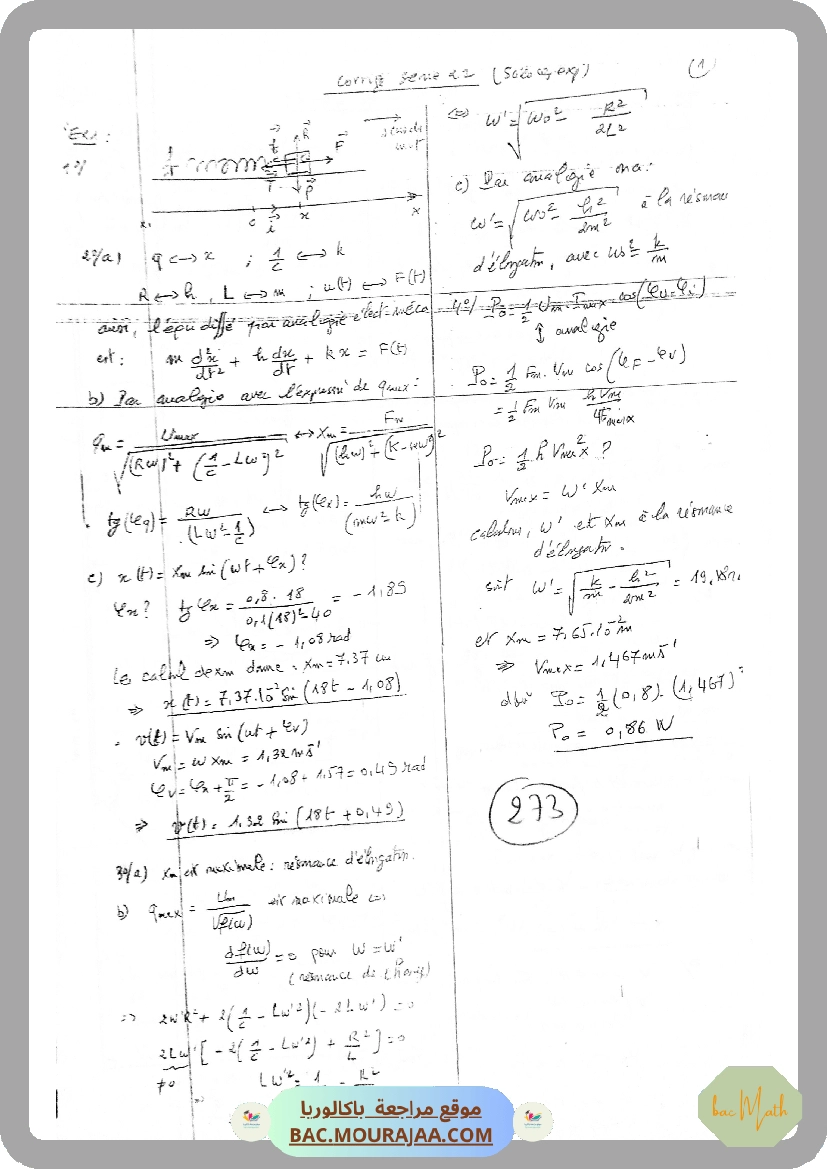 Corrigé Serie 22
(1)
Ex1 :
1°/
2°/a) q ↔ x ; 1/C ↔ k
R ↔ h, L ↔ m ; u(t) ↔ F(t)
ainsi, l'équ diff par analogie élect-méca
est : m d²x/dt² + h dx/dt + kx = F(t)
b) Par analogie avec l'expression de qmax :
qm = Umax / √((Rω)² + (1/C - Lω²)²) ↔ Xm = Fm / √((hω)² + (K - mω²)²)
tg(φq) = Rω / (Lω² - 1/C) ↔ tg(φx) = hω / (mω² - k)
c) x(t) = Xm sin(ωt + φx) ?
φx ? tg φx = 0,8 . 18 / 0,1(18)² - 40 = - 1,89
⇒ φx = - 1,08 rad
Le calcul de xm donne : Xm = 7,37 cm
⇒ x(t) = 7,37.10⁻² sin(18t - 1,08)
. v(t) = Vm sin(ωt + φv)
Vm = ω Xm = 1,32 ms⁻¹
φv = φx + π/2 = - 1,08 + 1,57 = 0,49 rad
⇒ v(t) = 1,32 sin(18t + 0,49)
3°/a) Xm est maximale : résonance d'élongation.
b) qmax = Um / √f(ω) est maximale
df(ω)/dω = 0 pour ω = ω'
(résonance de charge)
⇒ 2ω'R² + 2(1/C - Lω'²)(-2Lω') = 0
2Lω' [-2(1/C - Lω'²) + R²/L] = 0
≠0
⇔ ω' = √(ω0² - R²/2L²)
c) Par analogie on a :
ω' = √(ω0² - h²/2m²) à la résonance
d'élongation, avec ω0² = k/m
4°/ P0 = 1/2 Um . Imax cos(φu - φi)
↕ analogie
P0 = 1/2 Fm . Vm cos(φF - φv)
= 1/2 Fm Vm h Vm / Fmax
P0 = 1/2 h Vmax² ?
Vmax = ω' Xm
calculons, ω' et Xm à la résonance
d'élongation.
soit ω' = √(k/m - h²/2m²)
et Xm = 7,65.10⁻² m
⇒ Vmax = 1,467 ms⁻¹
d'où P0 = 1/2 (0,8) . (1,467)²
P0 = 0,86 W
273
موقع مراجعة باكالوريا
BAC.MOURAJAA.COM
bac Math